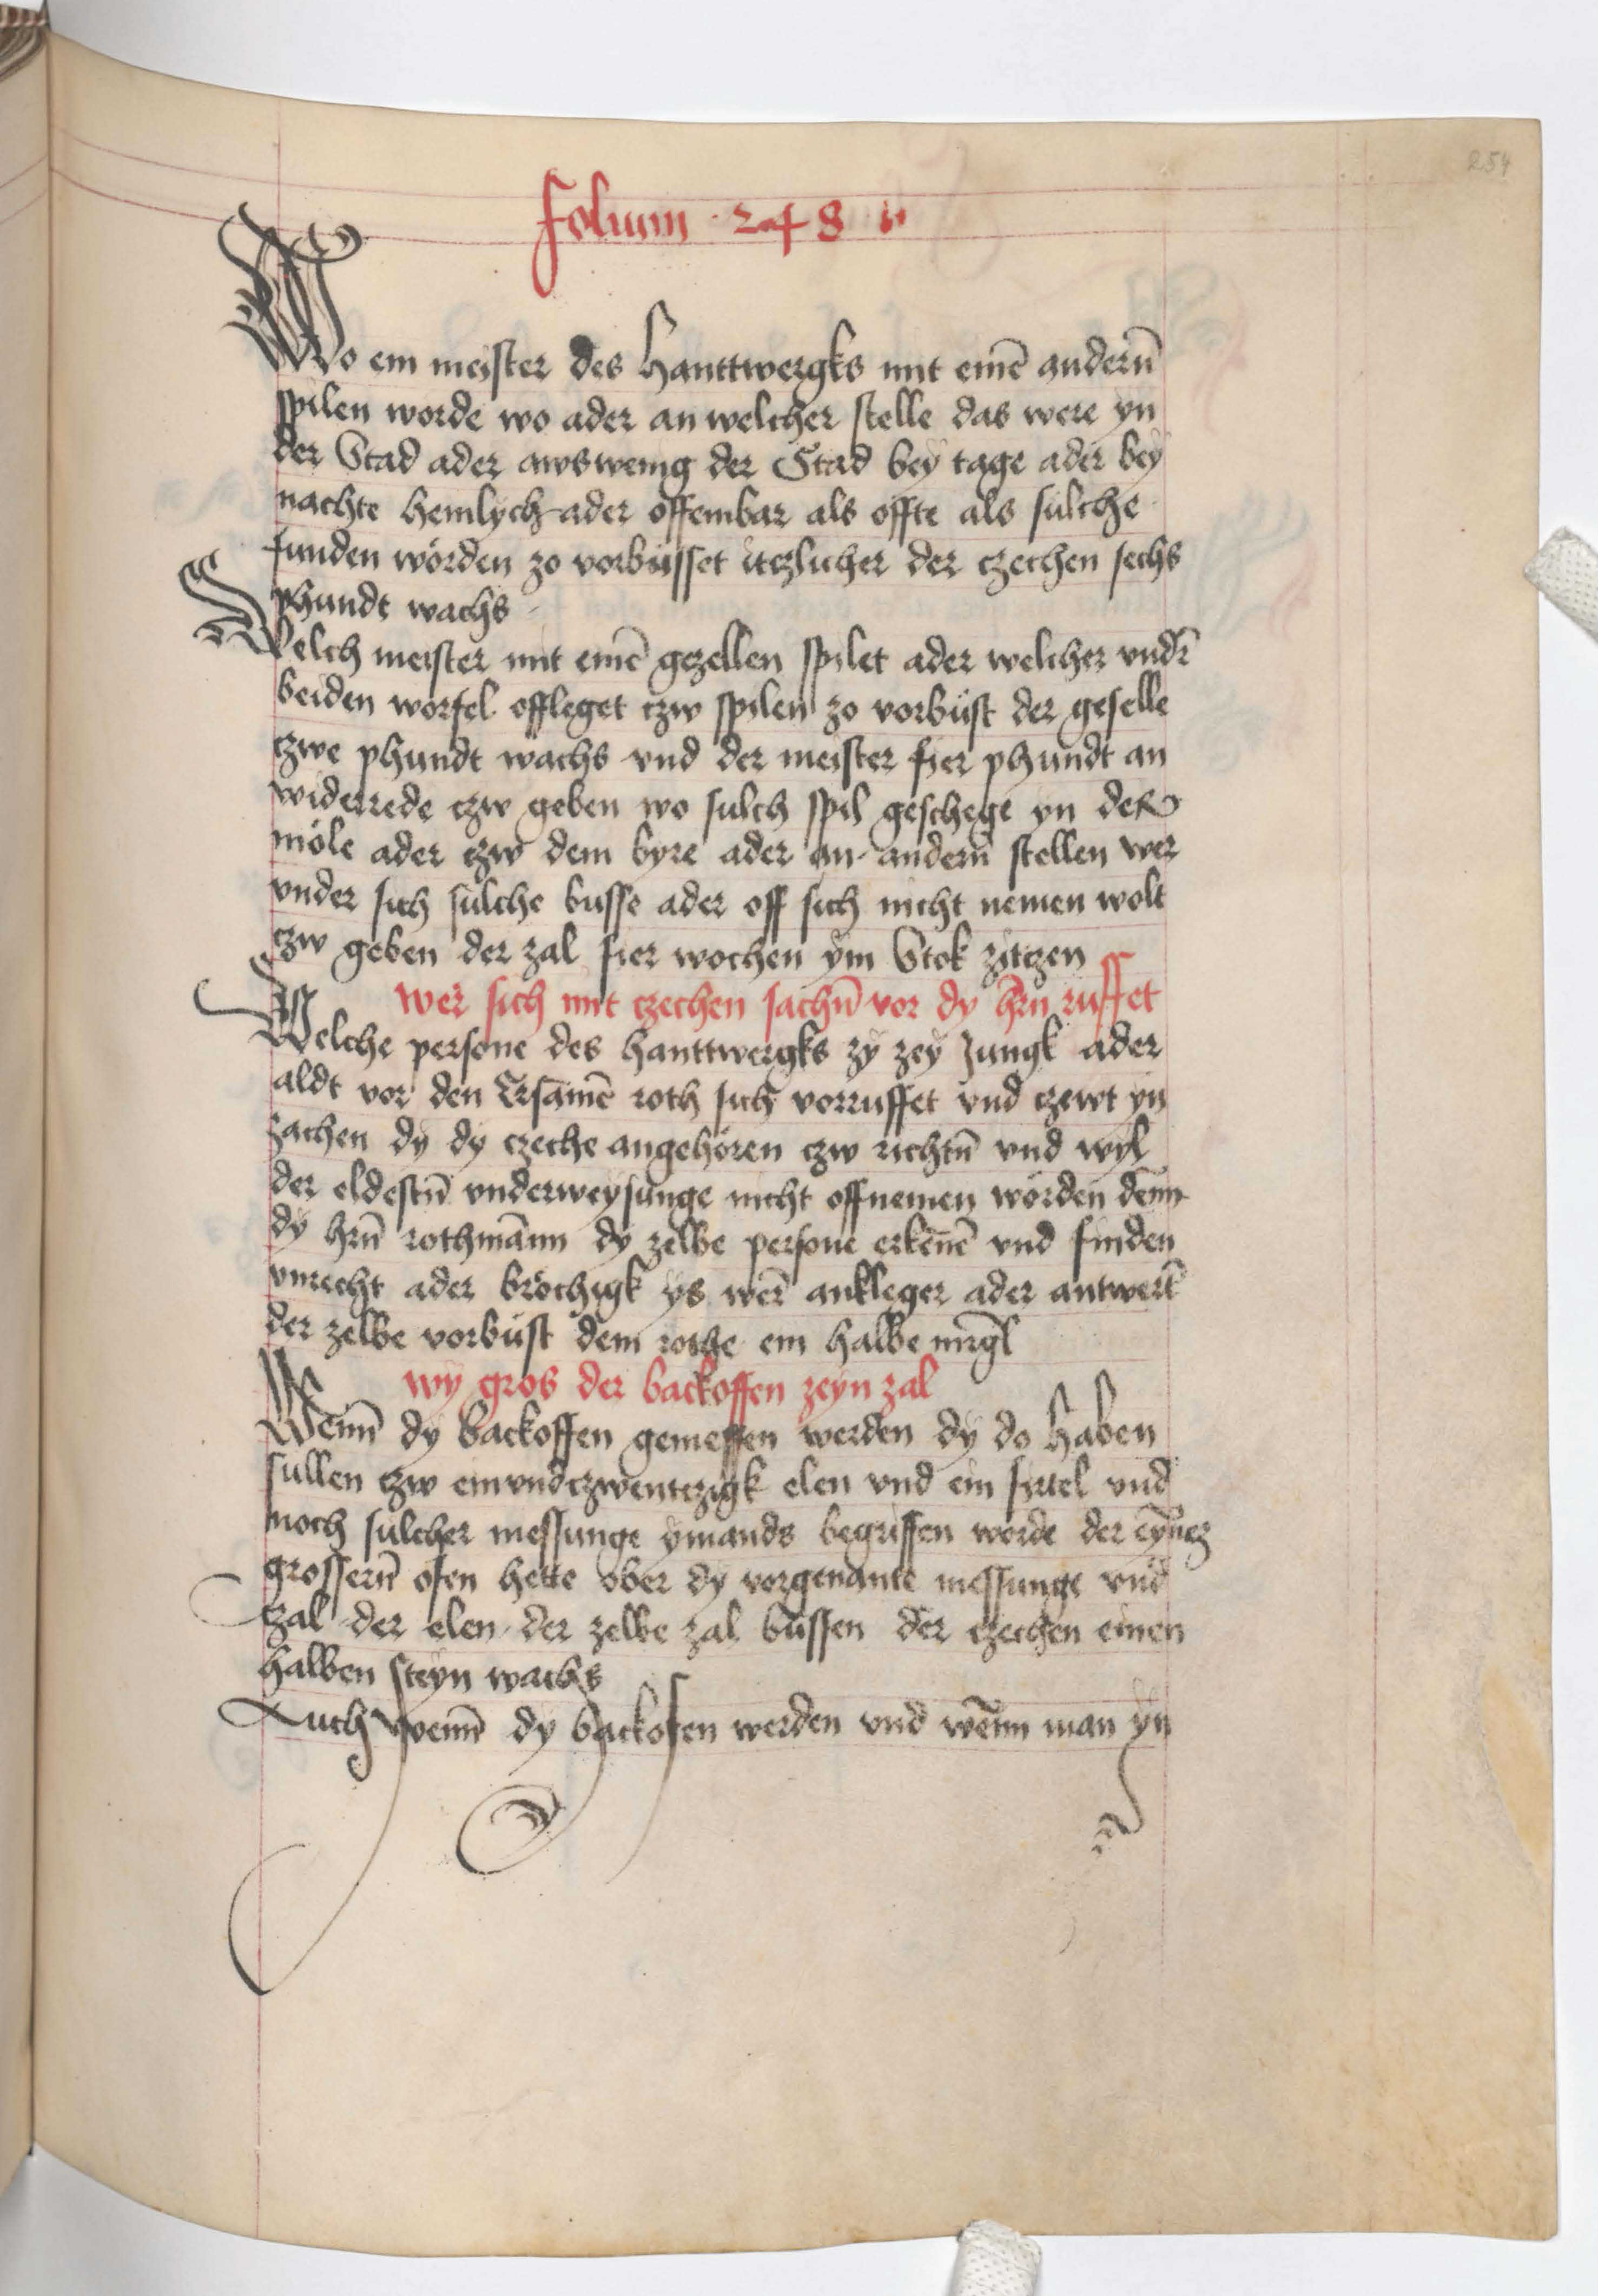 254
Folium · 248 ·
Wo ein meister des hanttwergks mit einē anderñ
spilen worde wo ader an welcher stelle das were yn
der Stad ader awswenig der Stad bey tage ader bey
nachte hemlych ader offembar als offte als sulche
funden wörden zo vorbüsset itczlicher der czechen sechs
phundt wachs
Welch meister mit einē gezellen spilet ader welcher vndr̄
beiden wörfel offleget czw spilen zo vorbüst der geselle
czwe phundt wachs vnd der meister fier phundt an
widerrede czw geben wo sulch spil geschege yn der
möle ader czw dem byre ader an andern̄ stellen wer
vnder sich sulche busse ader off sich nicht nemen wolt
czw geben der zal fier wochen ym Stok zitczen
wer sich mit czechen sachn̄ vor dy hr̄n ruffet
Welche persone des hanttwergks zy zey Jungk ader
aldt vor den Ersamē roth sich vorruffet vnd czewt yn
zachen dy dy czeche angehören czw richtn̄ vnd wyl
der eldestn̄ vnderweysunge nicht offnemen wörden den̄n
dy hrn̄ rothmān̄n dy zelbe persone erken̄ē vnd finden
vnrecht ader bröchigk ys wer̄ ankleger ader antwert̄
der zelbe vorbüst dem rothe ein halbe mrḡl
wy gros der backoffen zeyn zal
Wenn̄ dy backoffen gemessen werden dy do haben
sullen czw einvndczwentczigk elen vnd ein firtel vnd
noch sulcher messunge ymands begriffen worde der eyn̄ez
grossern̄ ofen hette ober dy vorgenante messunge vnd
zal der elen der zelbe zal büssen der czechen einen
halben steyn wachs
Auch wenn̄ dy backofen werden vnd wen̄n man yn